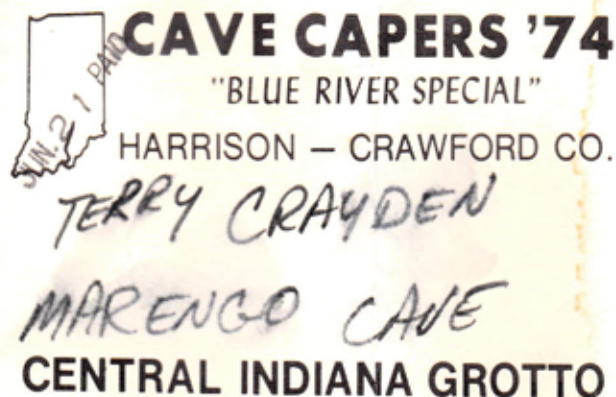 CAVE CAPERS '74
JUN. 21 PAID
"BLUE RIVER SPECIAL"
HARRISON – CRAWFORD CO.
TERRY CRAYDEN
MARENGO CAVE
CENTRAL INDIANA GROTTO